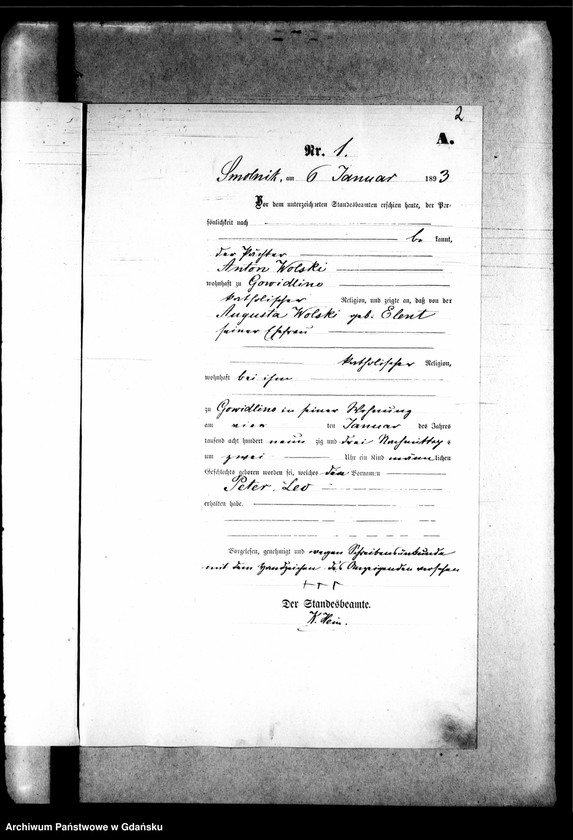 2
A.
Nr. 1.
Smolnik, am 6 Januar 1893
Vor dem unterzeichneten Standesbeamten erschien heute, der Per-
sönlichkeit nach
be kannt,
der Pächter
Anton Wolski
wohnhaft zu Gowidlino
katholischer Religion, und zeigte an, daß von der
Augusta Wolski geb. Elent
seiner Ehefrau
katholischer Religion,
wohnhaft bei ihm
zu Gowidlino in seiner Wohnung
am vier ten Januar des Jahres
tausend acht hundert neun zig und drei Nachmittags
um zwei Uhr ein Kind männlichen
Geschlechts geboren worden sei, welches den Vornamen
Peter Leo
erhalten habe.
Vorgelesen, genehmigt und wegen Schreibensunkunde
mit dem Handzeichen des Anzeigenden versehen
+++
Der Standesbeamte.
Hein.
Archiwum Państwowe w Gdańsku